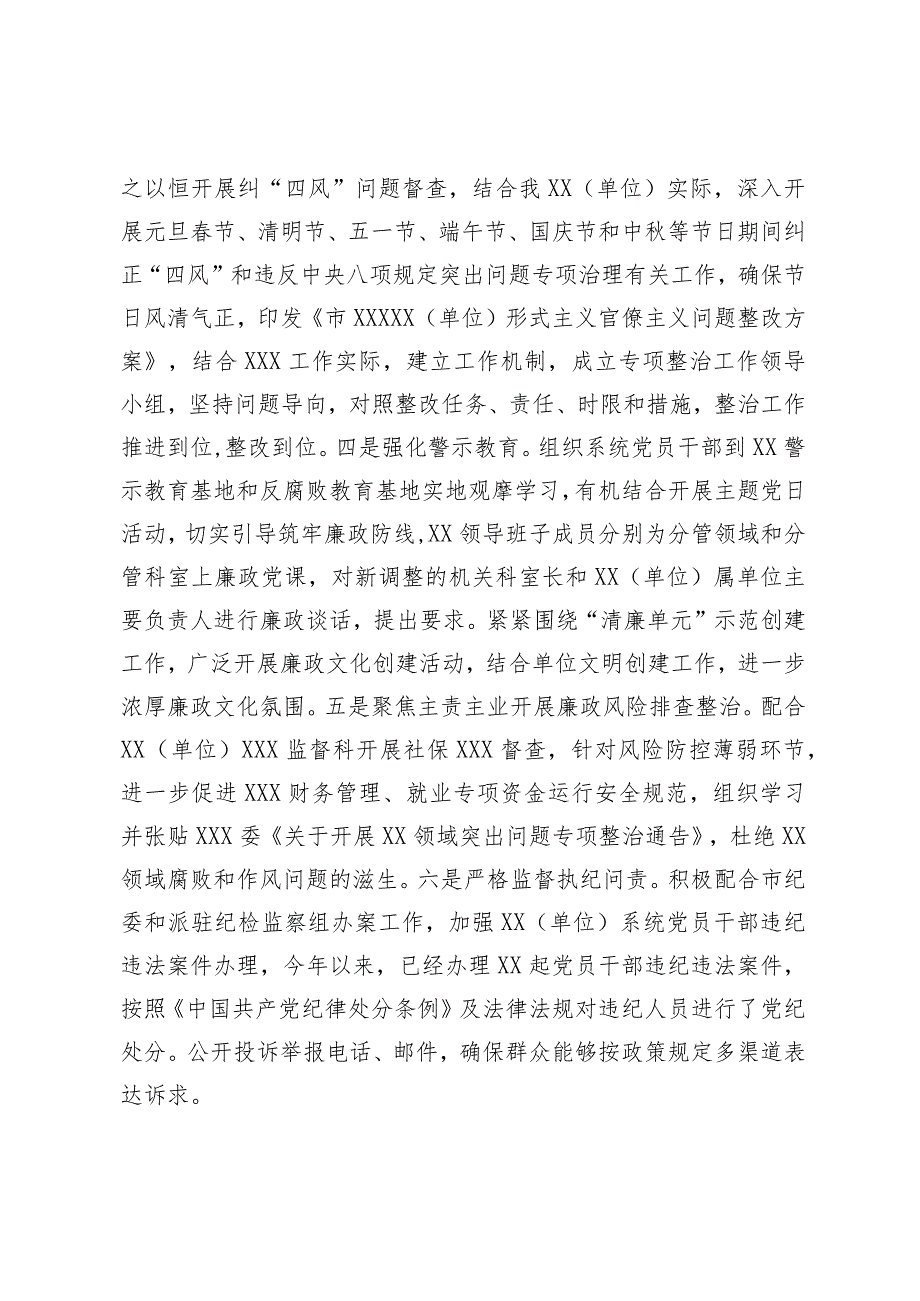 之以恒开展纠“四风”问题督查，结合我XX（单位）实际，深入开
展元旦春节、清明节、五一节、端午节、国庆节和中秋等节日期间纠
正“四风”和违反中央八项规定突出问题专项治理有关工作，确保节
日风清气正，印发《市XXXXX（单位）形式主义官僚主义问题整改方
案》，结合XXX工作实际，建立工作机制，成立专项整治工作领导
小组，坚持问题导向，对照整改任务、责任、时限和措施，整治工作
推进到位,整改到位。四是强化警示教育。组织系统党员干部到XX警
示教育基地和反腐败教育基地实地观摩学习,有机结合开展主题党日
活动，切实引导筑牢廉政防线,XX领导班子成员分别为分管领域和分
管科室上廉政党课，对新调整的机关科室长和XX（单位）属单位主
要负责人进行廉政谈话，提出要求。紧紧围绕“清廉单元”示范创建
工作，广泛开展廉政文化创建活动，结合单位文明创建工作，进一步
浓厚廉政文化氛围。五是聚焦主责主业开展廉政风险排查整治。配合
XX（单位）XXX监督科开展社保XXX督查，针对风险防控薄弱环节，
进一步促进XXX财务管理、就业专项资金运行安全规范，组织学习
并张贴XXX委《关于开展XX领域突出问题专项整治通告》，杜绝XX
领域腐败和作风问题的滋生。六是严格监督执纪问责。积极配合市纪
委和派驻纪检监察组办案工作，加强XX（单位）系统党员干部违纪
违法案件办理，今年以来，已经办理XX起党员干部违纪违法案件，
按照《中国共产党纪律处分条例》及法律法规对违纪人员进行了党纪
处分。公开投诉举报电话、邮件，确保群众能够按政策规定多渠道表
达诉求。